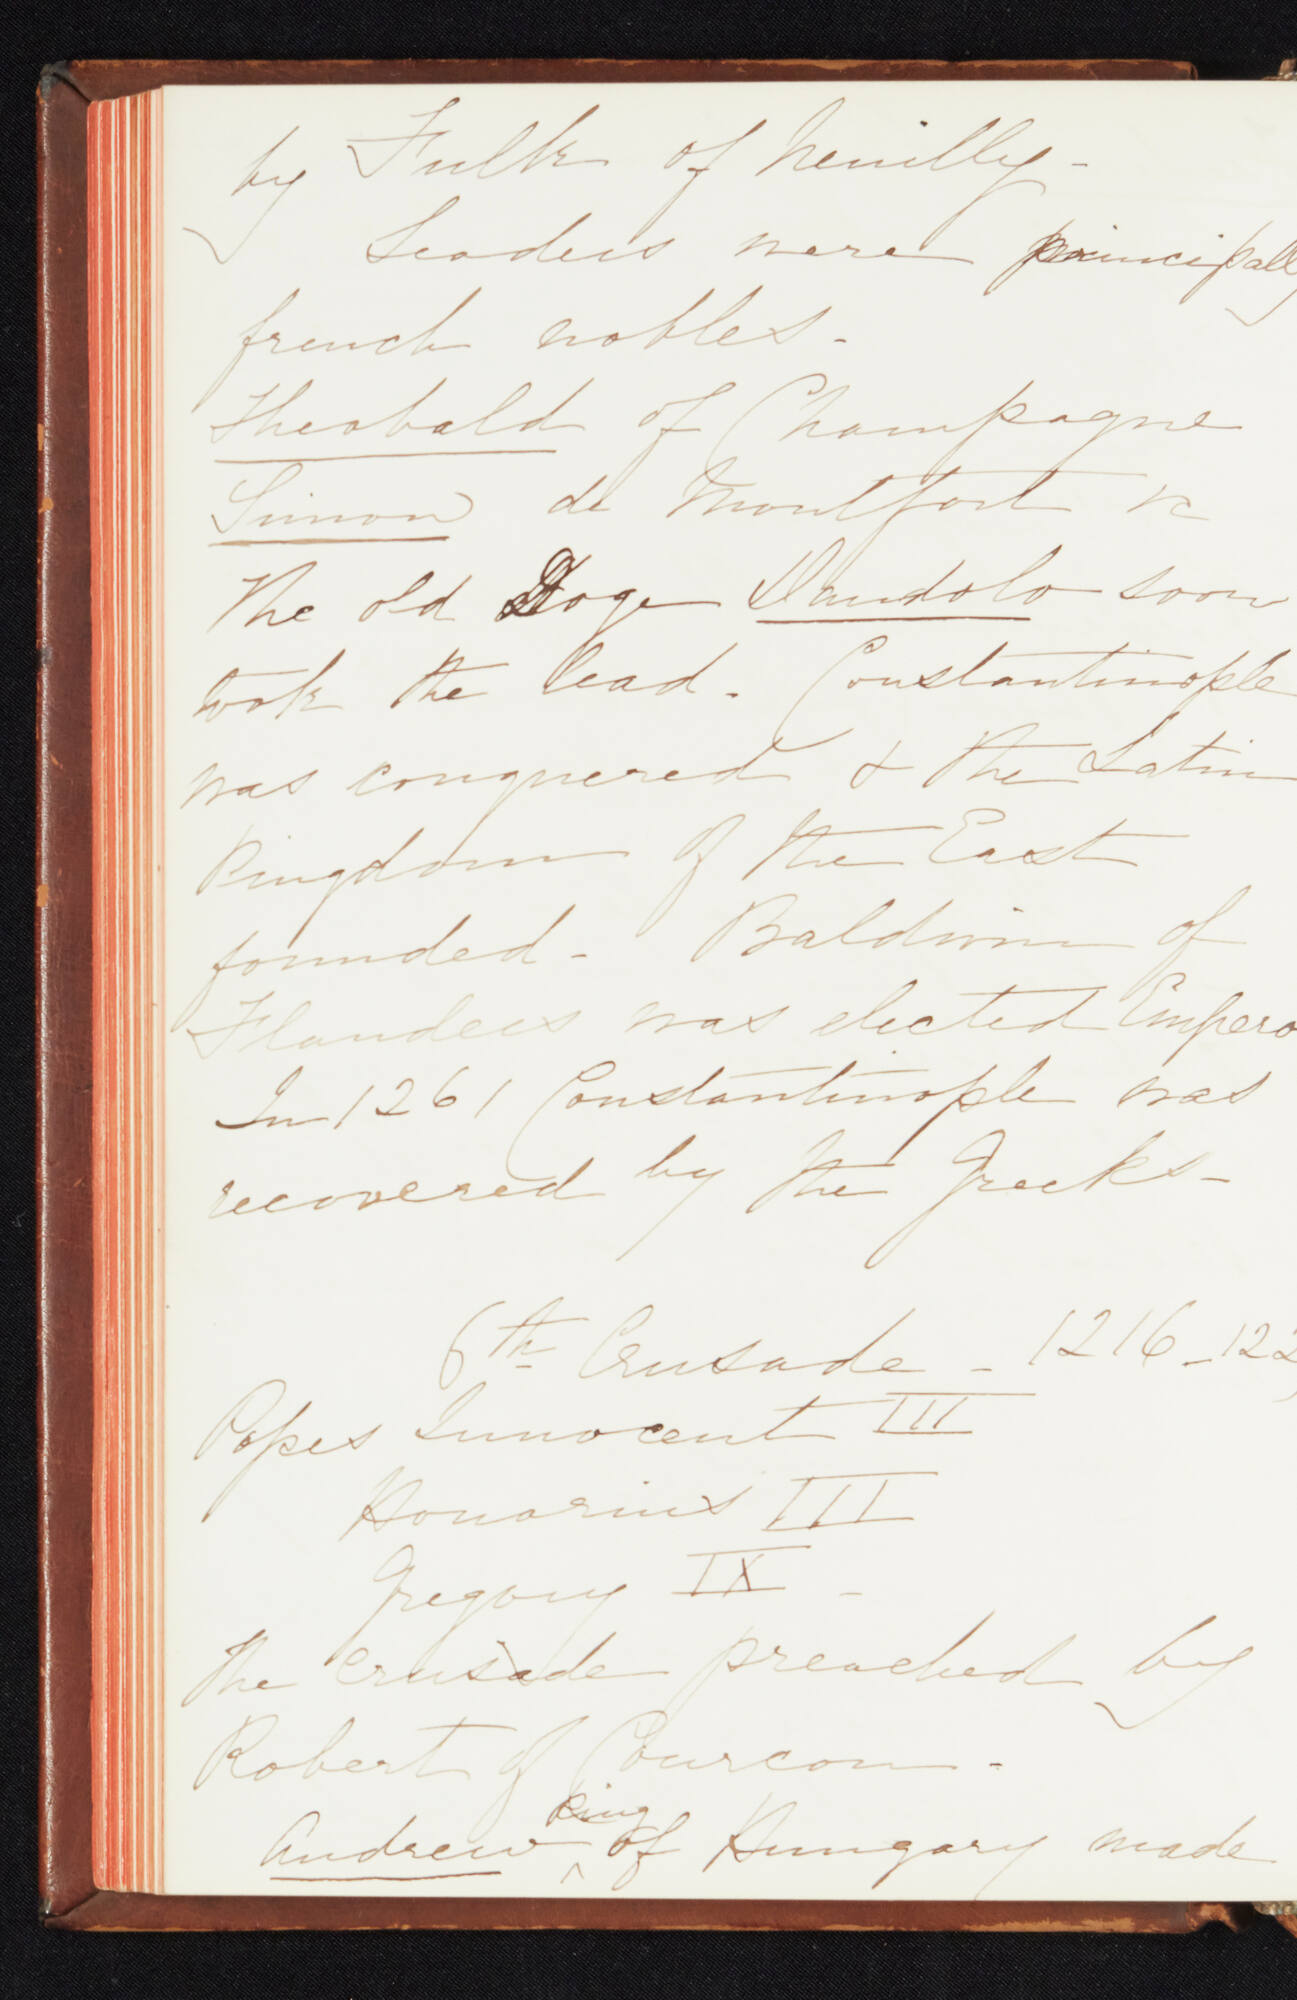 by Fulk of Neuilly -
Leaders were principally
french nobles -
Theobald of Champagne
Simon de Montfort &c
The old Doge Dandolo soon
took the lead. Constantinople
was conquered & the Latin
Kingdom of the East
founded - Baldwin of
Flanders was elected Empero
In 1261 Constantinople was
recovered by the Greeks -
6th Crusade - 1216 - 122
Popes Innocent III
Honorius III
Gregory IX -
The crusade preached by
Robert of Courcon -
Andrew King of Hungary made